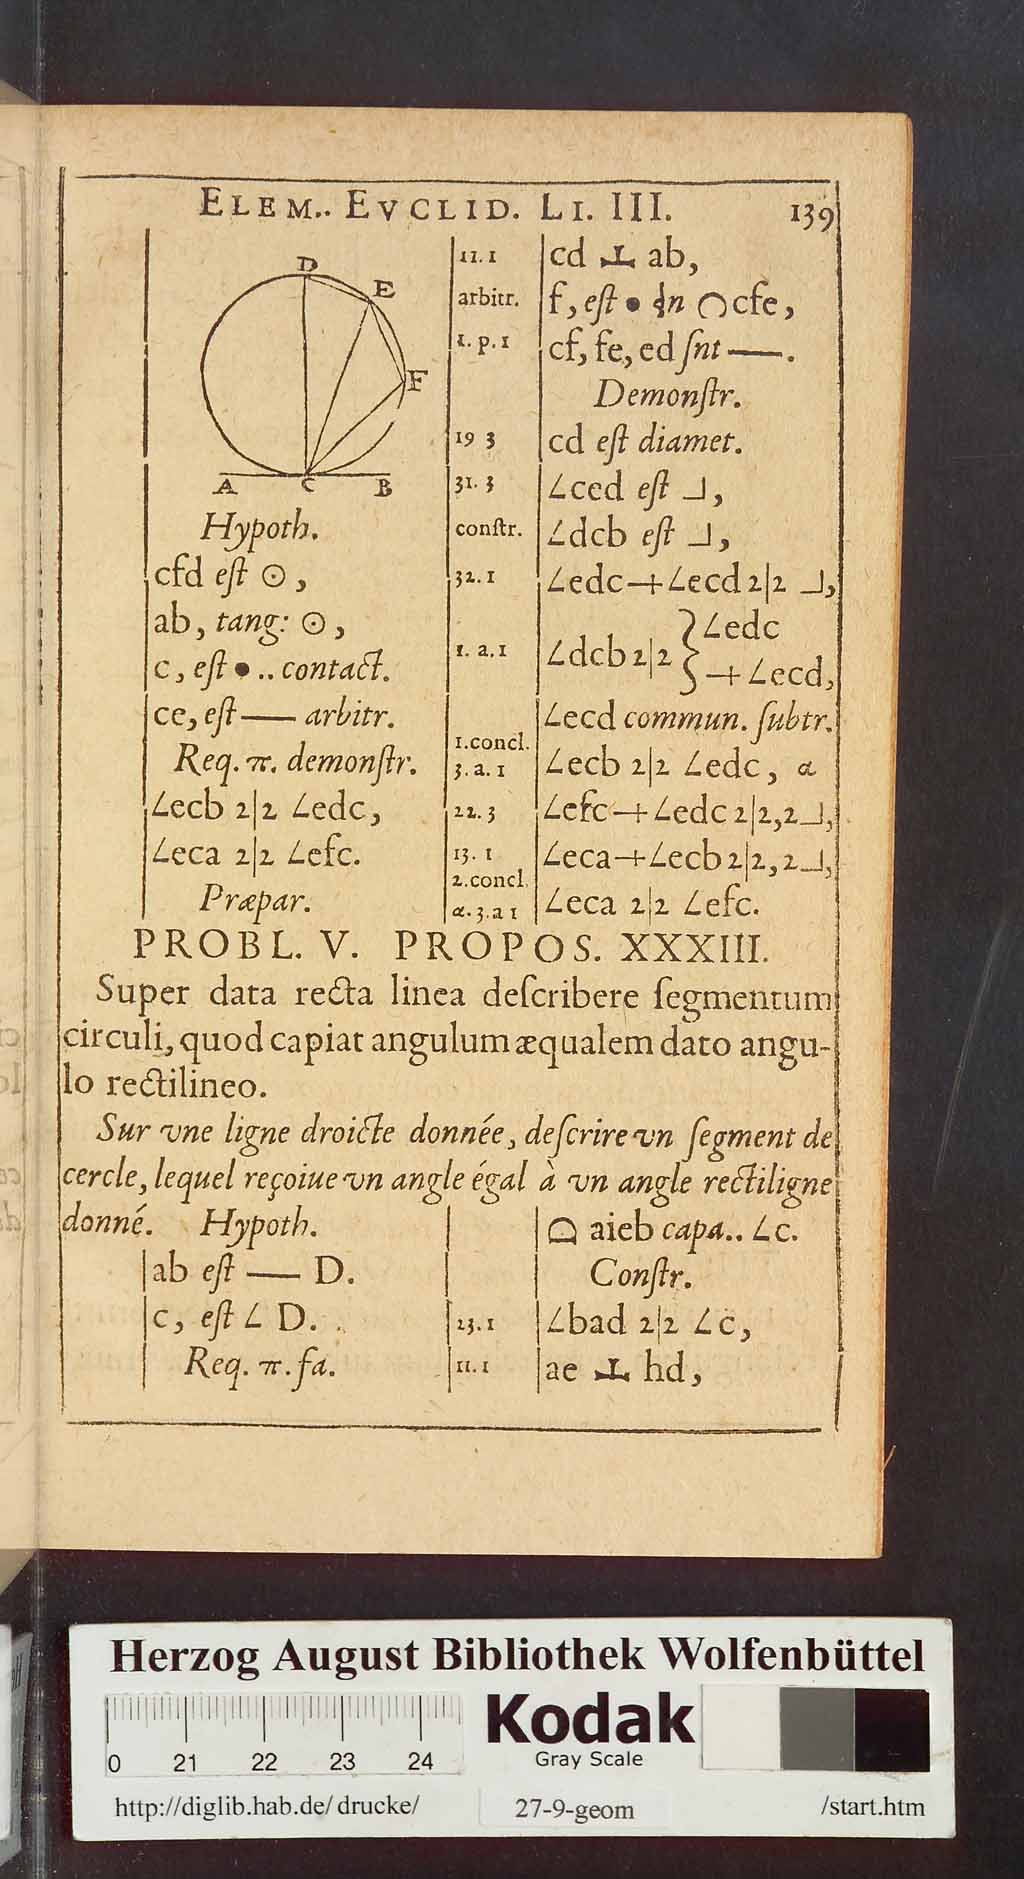 ELEM.. EVCLID. LI. III. 139
D
E
F
A C B
Hypoth.
cfd eſt ⊙,
ab, tang: ⊙,
c, eſt • .. contact.
ce, eſt — arbitr.
Req. π. demonſtr.
∠ecb 2|2 ∠edc,
∠eca 2|2 ∠efc.
Præpar.
11. 1 cd ⊥ ab,
arbitr. f, eſt • ſn ◠ cfe,
1. p. 1 cf, fe, ed ſnt —.
Demonſtr.
19 3 cd eſt diamet.
31. 3 ∠ced eſt ⅃,
conſtr. ∠dcb eſt ⅃,
32. 1 ∠edc + ∠ecd 2|2 ⅃,
1. a. 1 ∠dcb 2|2 } ∠edc
+ ∠ecd,
∠ecd commun. ſubtr.
1. concl.
3. a. 1 ∠ecb 2|2 ∠edc, α
22. 3 ∠efc + ∠edc 2|2, 2⅃,
13. 1 ∠eca + ∠ecb 2|2, 2⅃,
2. concl.
α. 3. a 1 ∠eca 2|2 ∠efc.
PROBL. V. PROPOS. XXXIII.
Super data recta linea deſcribere ſegmentum
circuli, quod capiat angulum æqualem dato angu-
lo rectilineo.
Sur vne ligne droicte donnée, deſcrire vn ſegment de
cercle, lequel reçoiue vn angle égal à vn angle rectiligne
donné. Hypoth.
ab eſt — D.
c, eſt ∠ D.
Req. π. fa.
⌓ aieb capa.. ∠c.
Conſtr.
23. 1 ∠bad 2|2 ∠c,
11. 1 ae ⊥ hd,
Herzog August Bibliothek Wolfenbüttel
Kodak
Gray Scale
0 21 22 23 24
http://diglib.hab.de/drucke/ 27-9-geom /start.htm